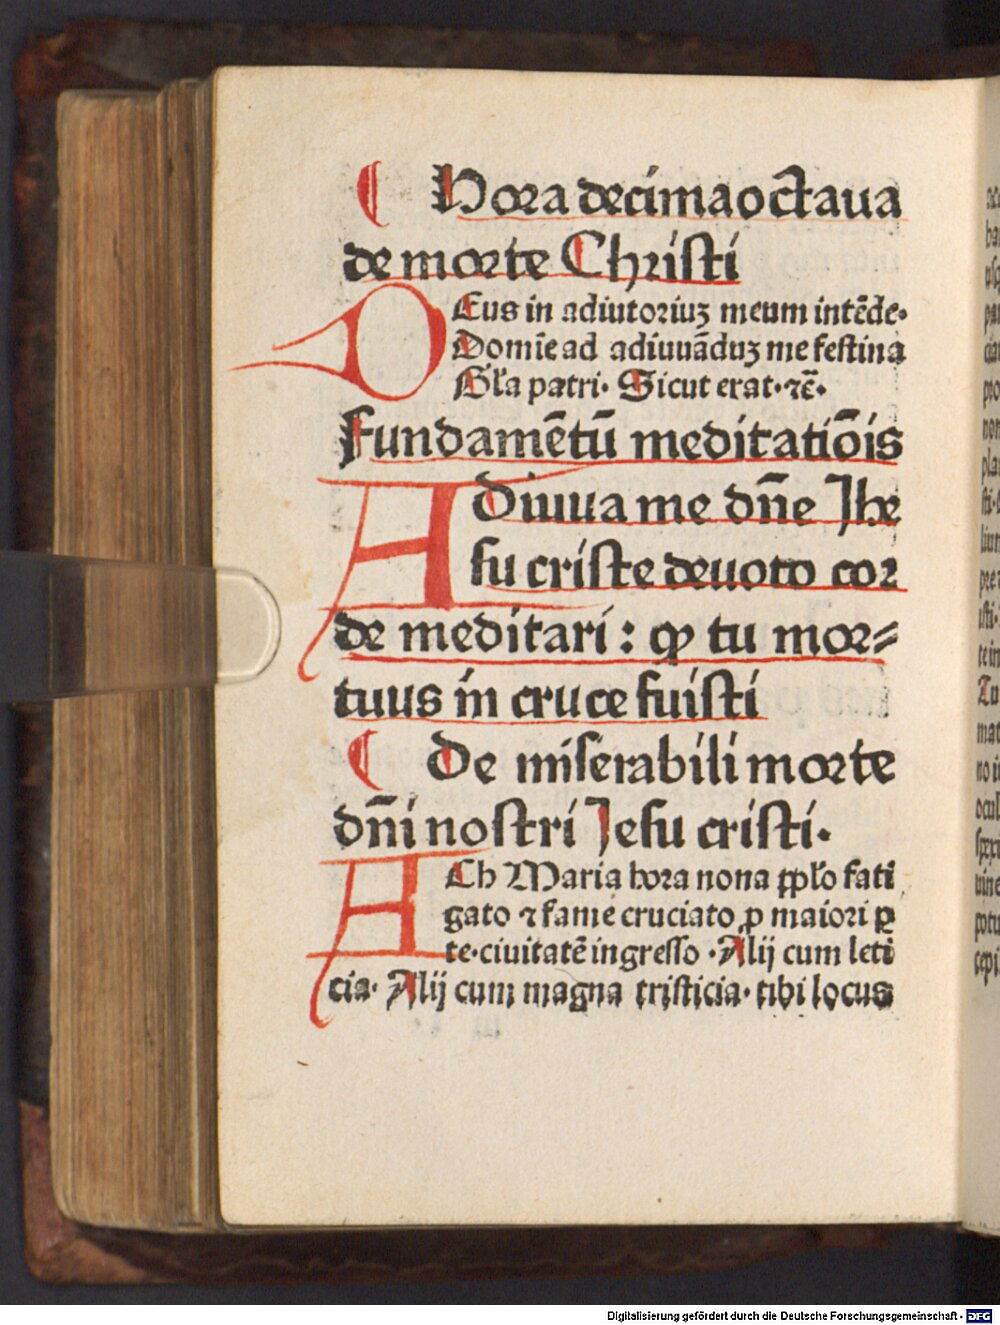 ¶ Hora decimaoctaua
de morte Christi
DEus in adiutoriuʒ meum intēde·
Domīe ad adiuuāduʒ me festina
Gl̄a patri· Sicut erat· ⁊c̄·
Fundamētū meditatiōis
ADiuua me dn̄e Jhe
su criste deuoto cor
de meditari : ꝙ tu mor⸗
tuus in cruce fuisti
¶ De miserabili morte
dn̄i nostri Jesu cristi·
ACh Maria hora nona pplo fati
gato ⁊ fame cruciato ꝓ maiori ꝑ
te·ciuitatē ingresso ·Alij cum leti
cia· Alij cum magna tristicia· tibi locus
Digitalisierung gefördert durch die Deutsche Forschungsgemeinschaft - DFG